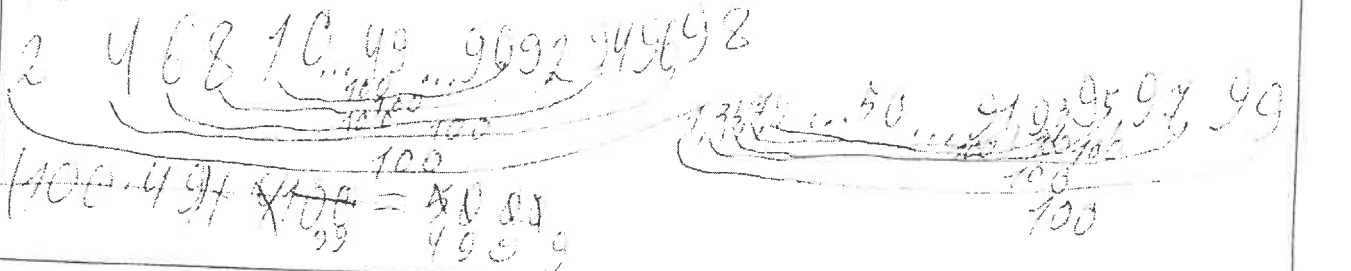 2 4 6 8 10 ... 49 ... 90 92 94 96 98
100
100
100 100
100
1, 3, 5, 7, 9 ... 50 ... 91, 93, 95, 97, 99
100 100 100
100
100
(100 · 49) + = 
99
4999